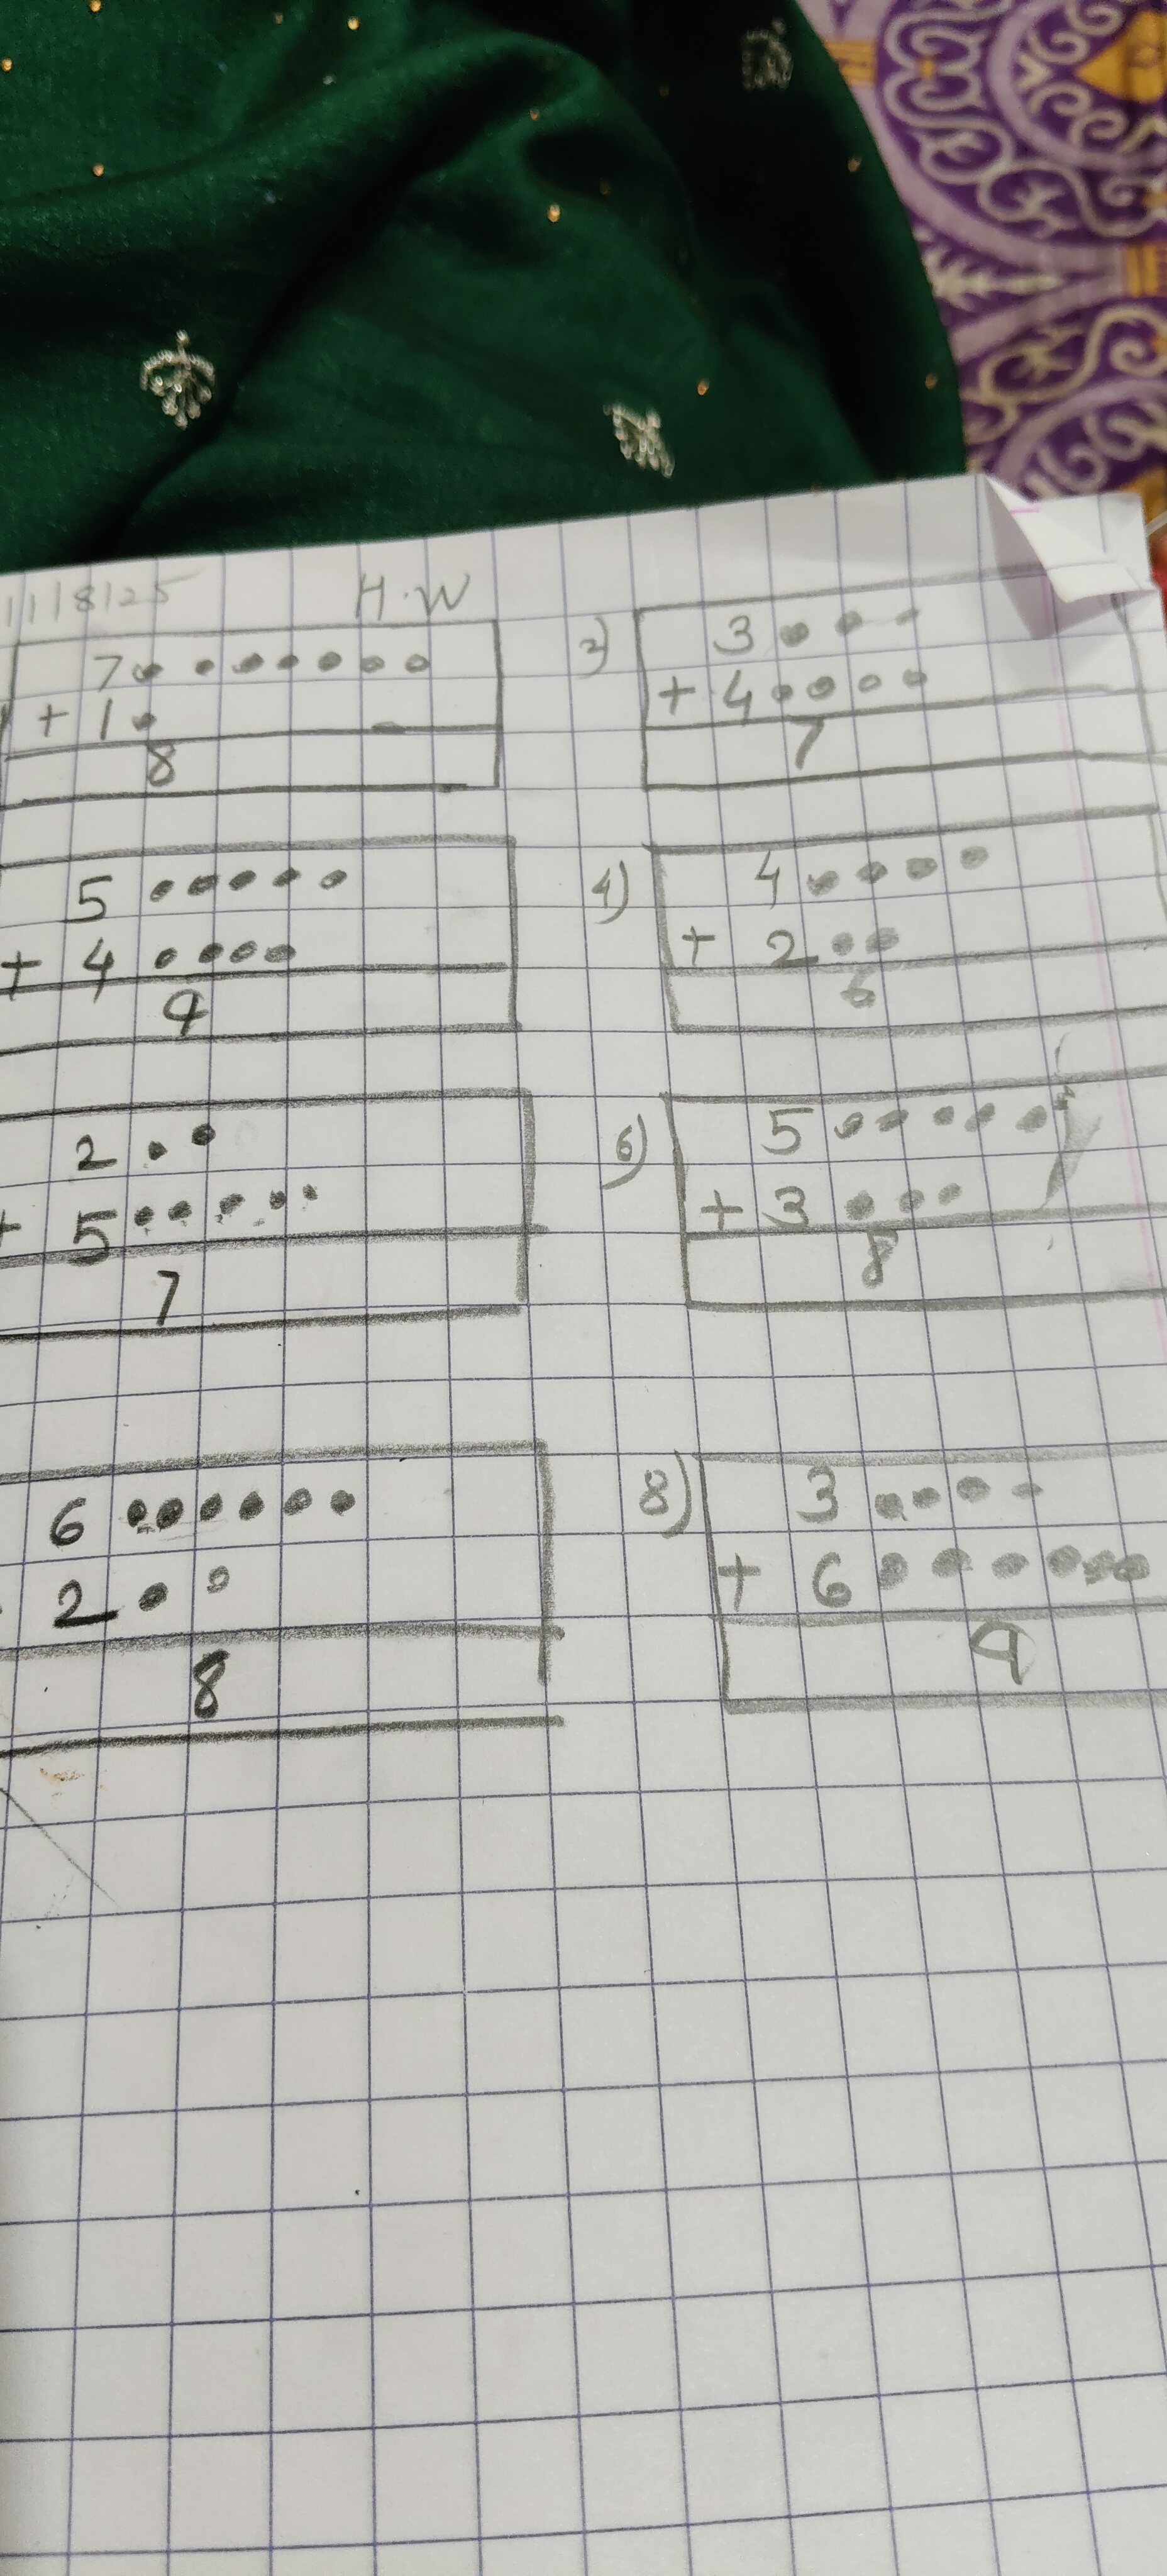 11|8|25 H.W
7
+ 1
8
2)
3
+ 4
7
5
+ 4
9
4)
4
+ 2
6
2
+ 5
7
6)
5
+ 3
8
6
2
8
8)
3
+ 6
9